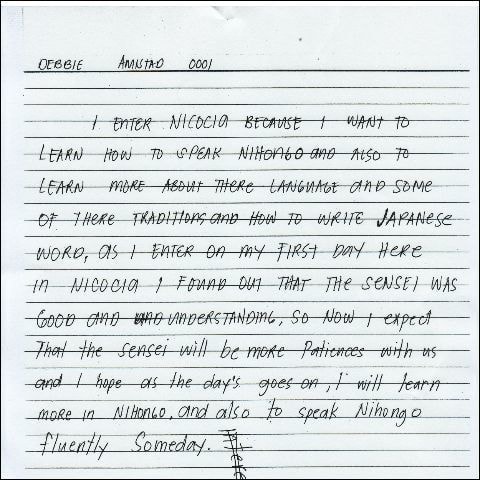 DEBBIE AMISTAD 0001
I ENTER NICOCIA BECAUSE I WANT TO
LEARN HOW TO SPEAK NIHONGO AND ALSO TO
LEARN MORE ABOUT THERE LANGUAGE AND SOME
OF THERE TRADITIONS AND HOW TO WRITE JAPANESE
WORD, AS I ENTER ON MY FIRST DAY HERE
IN NICOCIA I FOUND OUT THAT THE SENSEI WAS
GOOD AND UNDERSTANDING, SO NOW I expect
That the sensei will be more Patiences with us
and I hope as the day's goes on, I will learn
more in NIHONGO, and also to speak Nihongo
fluently Someday.